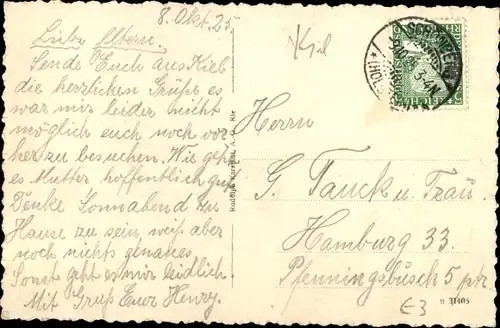 8. Okt. 25.
Liebe Eltern.
Sende Euch aus Kiel
die herzlichen Grüße es
war mir leider nicht
möglich euch noch vor
her zu besuchen. Wie geht
es Mutter hoffentlich gut
Denke Sonnabend zu
Hause zu sein, weiß aber
noch nichts genaues.
Sonst geht es mir leidlich.
Mit Gruß Euer Henry.
Kiel
Herrn
G. Tauck u Frau.
Hamburg 33.
Pfenningsbusch 5 ptr.
n 31405
E3